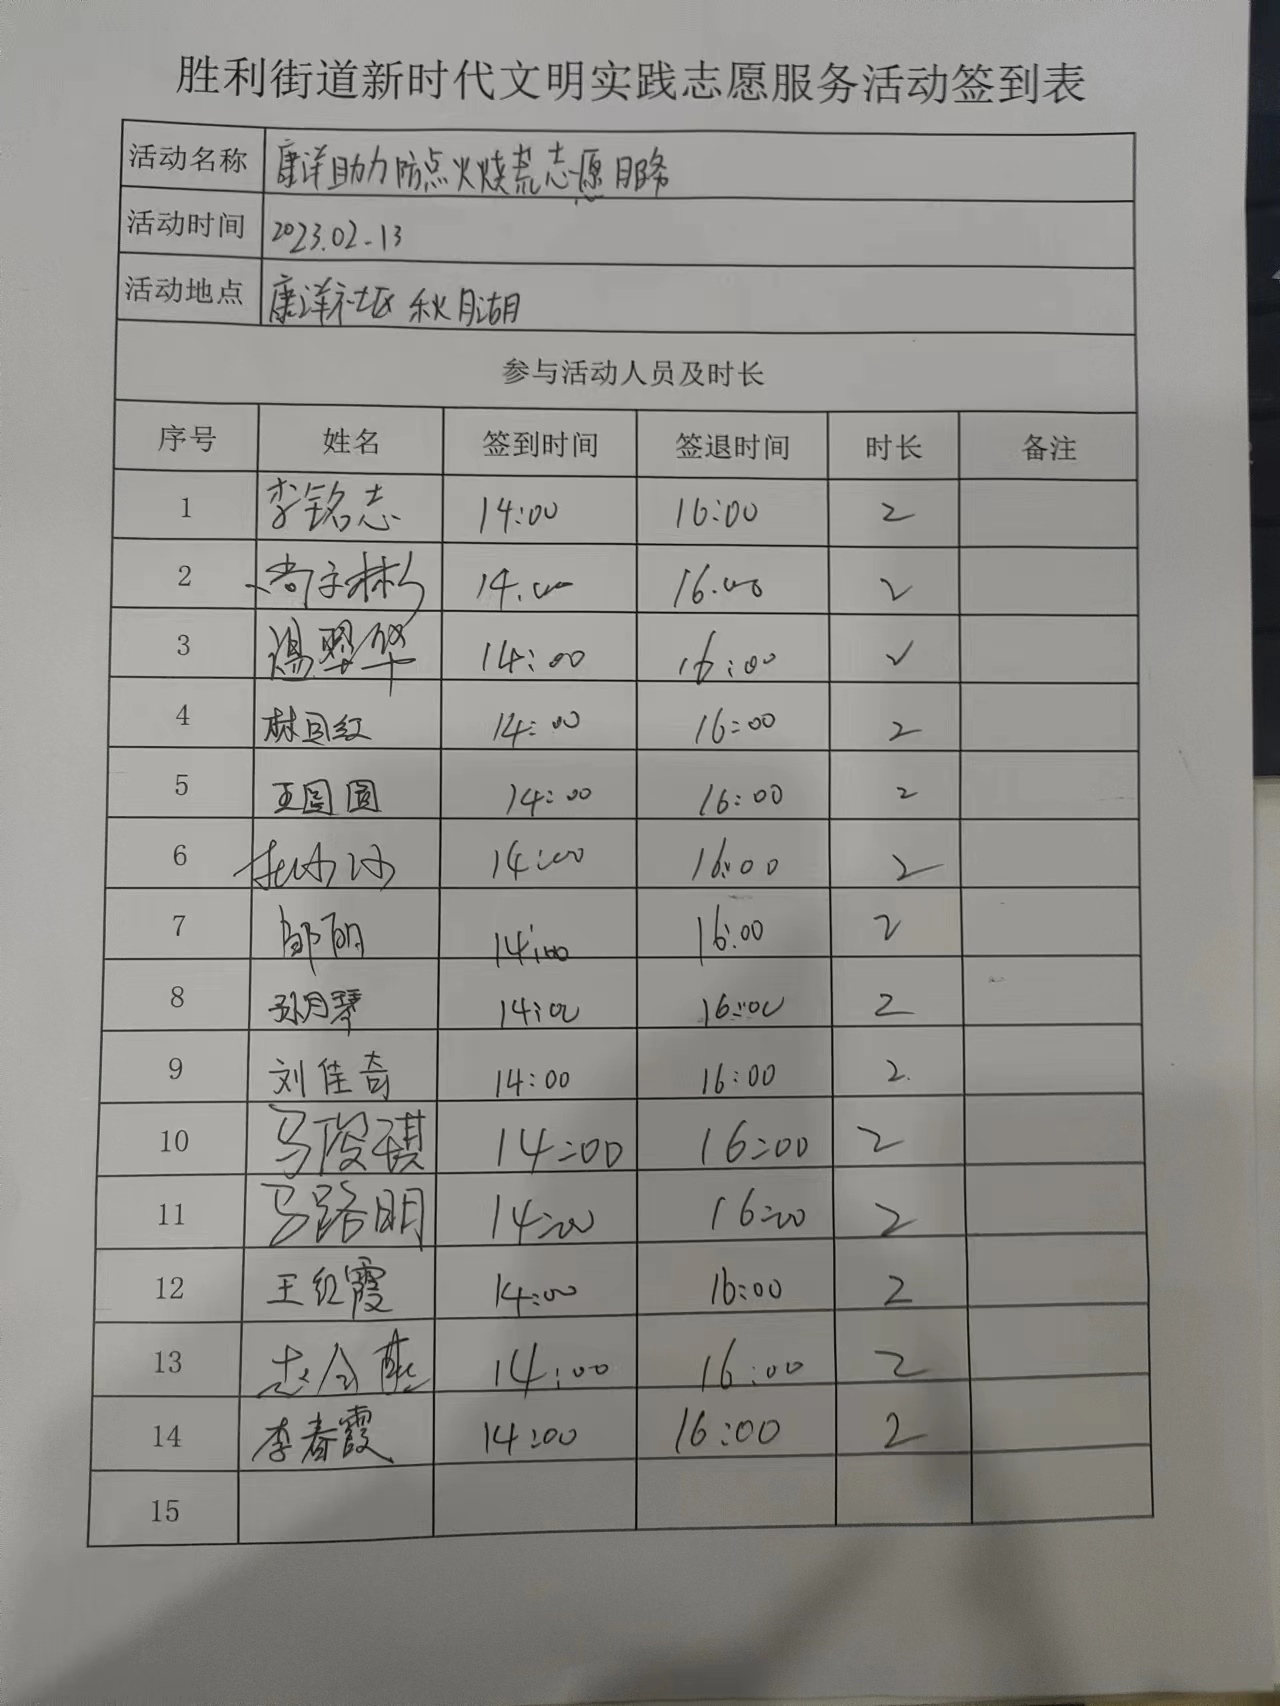 胜利街道新时代文明实践志愿服务活动签到表
活动名称 康洋助力防点火烧荒志愿服务
活动时间 2023.02-13
活动地点 康洋社区秋月湖
参与活动人员及时长
序号 姓名 签到时间 签退时间 时长 备注
1 李铭志 14:00 16:00 2
2 14:00 16:00 2
3 14:00 16:00 2
4 14:00 16:00 2
5 王圆圆 14:00 16:00 2
6 14:00 16:00 2
7 14:00 16:00 2
8 孙月琴 14:00 16:00 2
9 刘佳奇 14:00 16:00 2
10 马俊琪 14:00 16:00 2
11 马路明 14:00 16:00 2
12 王红霞 14:00 16:00 2
13 14:00 16:00 2
14 李春霞 14:00 16:00 2
15